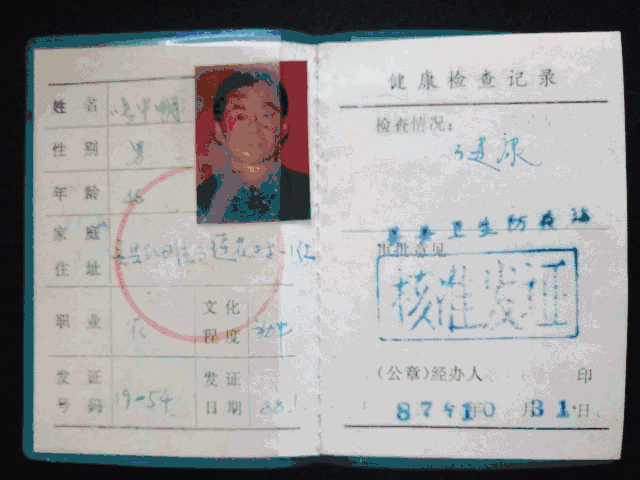 姓名
性别 男
年龄
家庭住址
职业 农
文化程度 初中
发证号码 19-54
发证日期 88.1
健康检查记录
检查情况：
健康
县卫生防疫站
审批意见
核准发证
(公章)经办人 印
87年10月31日